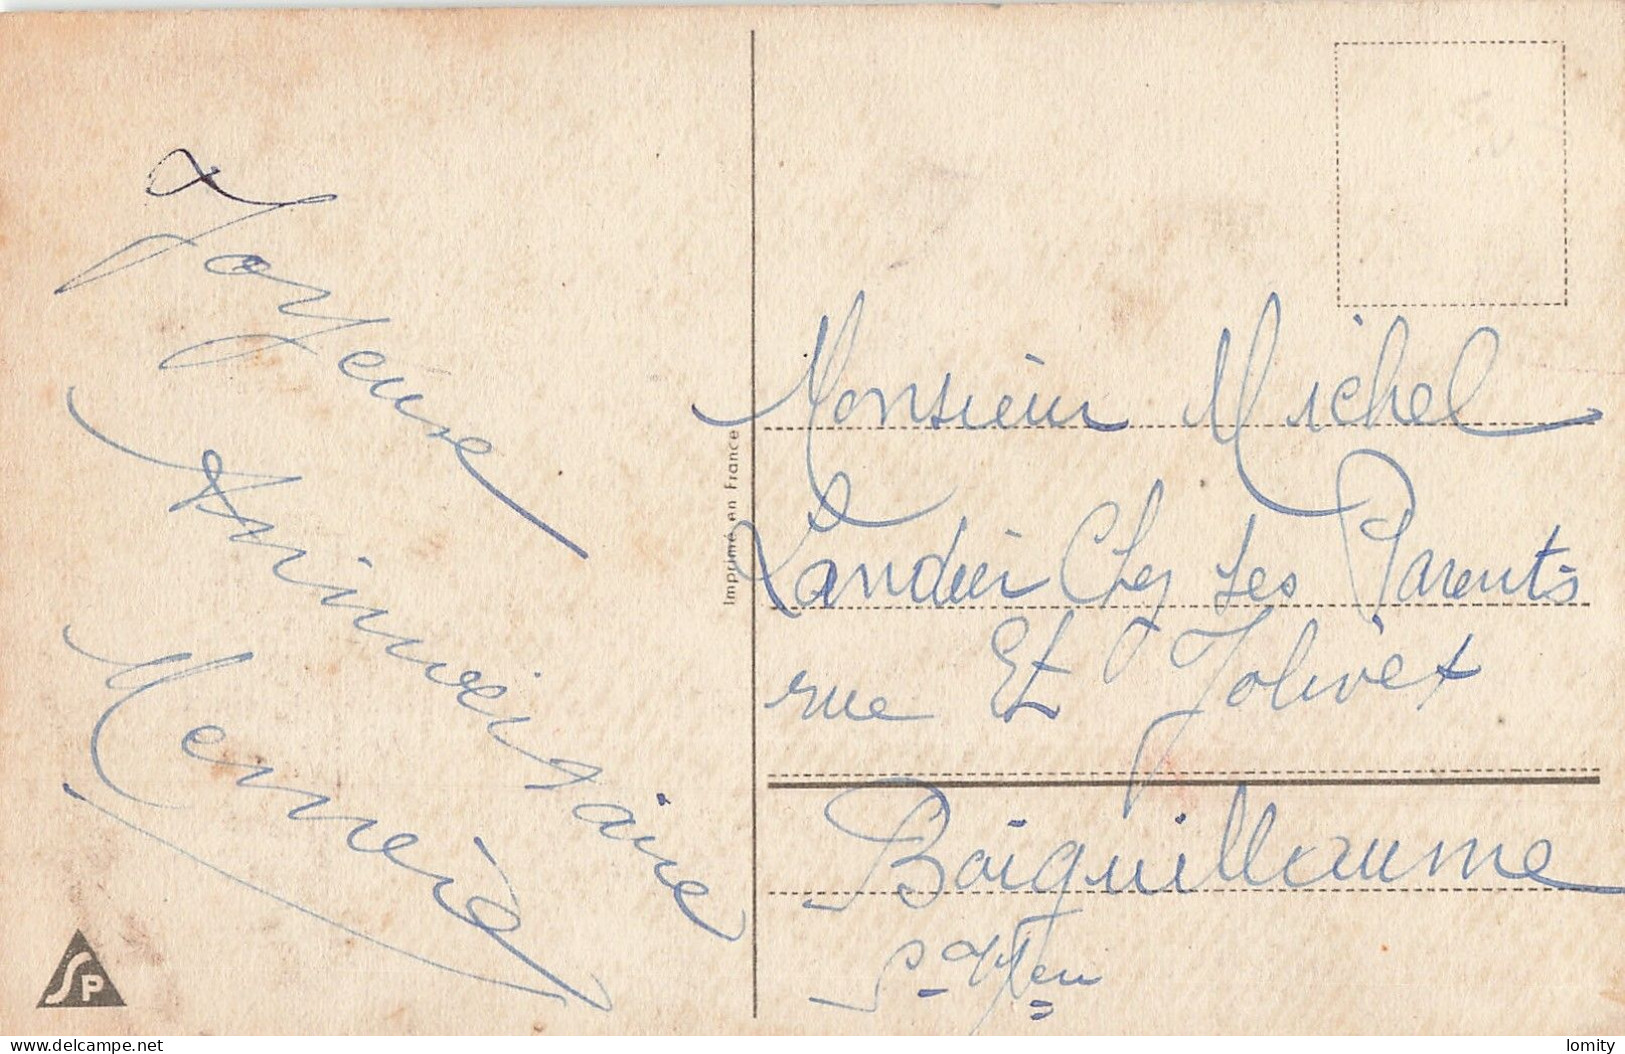 Joyeuse
Anniversaire
Imprimé en France
Monsieur Michel
Landier Chez Ses Parents
rue Et Jolivet
Boiguillaume
S. Inf eu
SP
delcampe.net
lomity